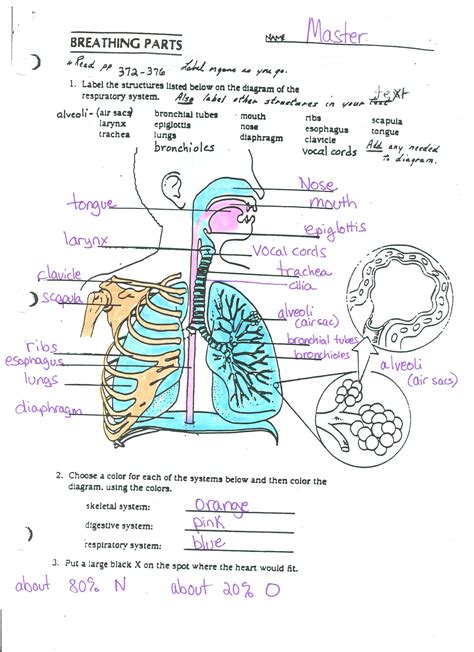 BREATHING PARTS
NAME Master
* Read pp 372-376 Label organs as you go.
1. Label the structures listed below on the diagram of the text
respiratory system. Also label other structures in your text
alveoli - (air sacs) bronchial tubes mouth ribs scapula
larynx epiglottis nose esophagus tongue
trachea lungs diaphragm clavicle Add any needed
bronchioles vocal cords to diagram.
Nose
tongue mouth
epiglottis
larynx vocal cords
trachea
clavicle cilia
scapula
alveoli
(airsac)
ribs bronchial tubes
esophagus bronchioles
alveoli
lungs (air sacs)
diaphragm
2. Choose a color for each of the systems below and then color the
diagram, using the colors.
skeletal system: orange
digestive system: pink
respiratory system: blue
3. Put a large black X on the spot where the heart would fit.
about 80% N about 20% O